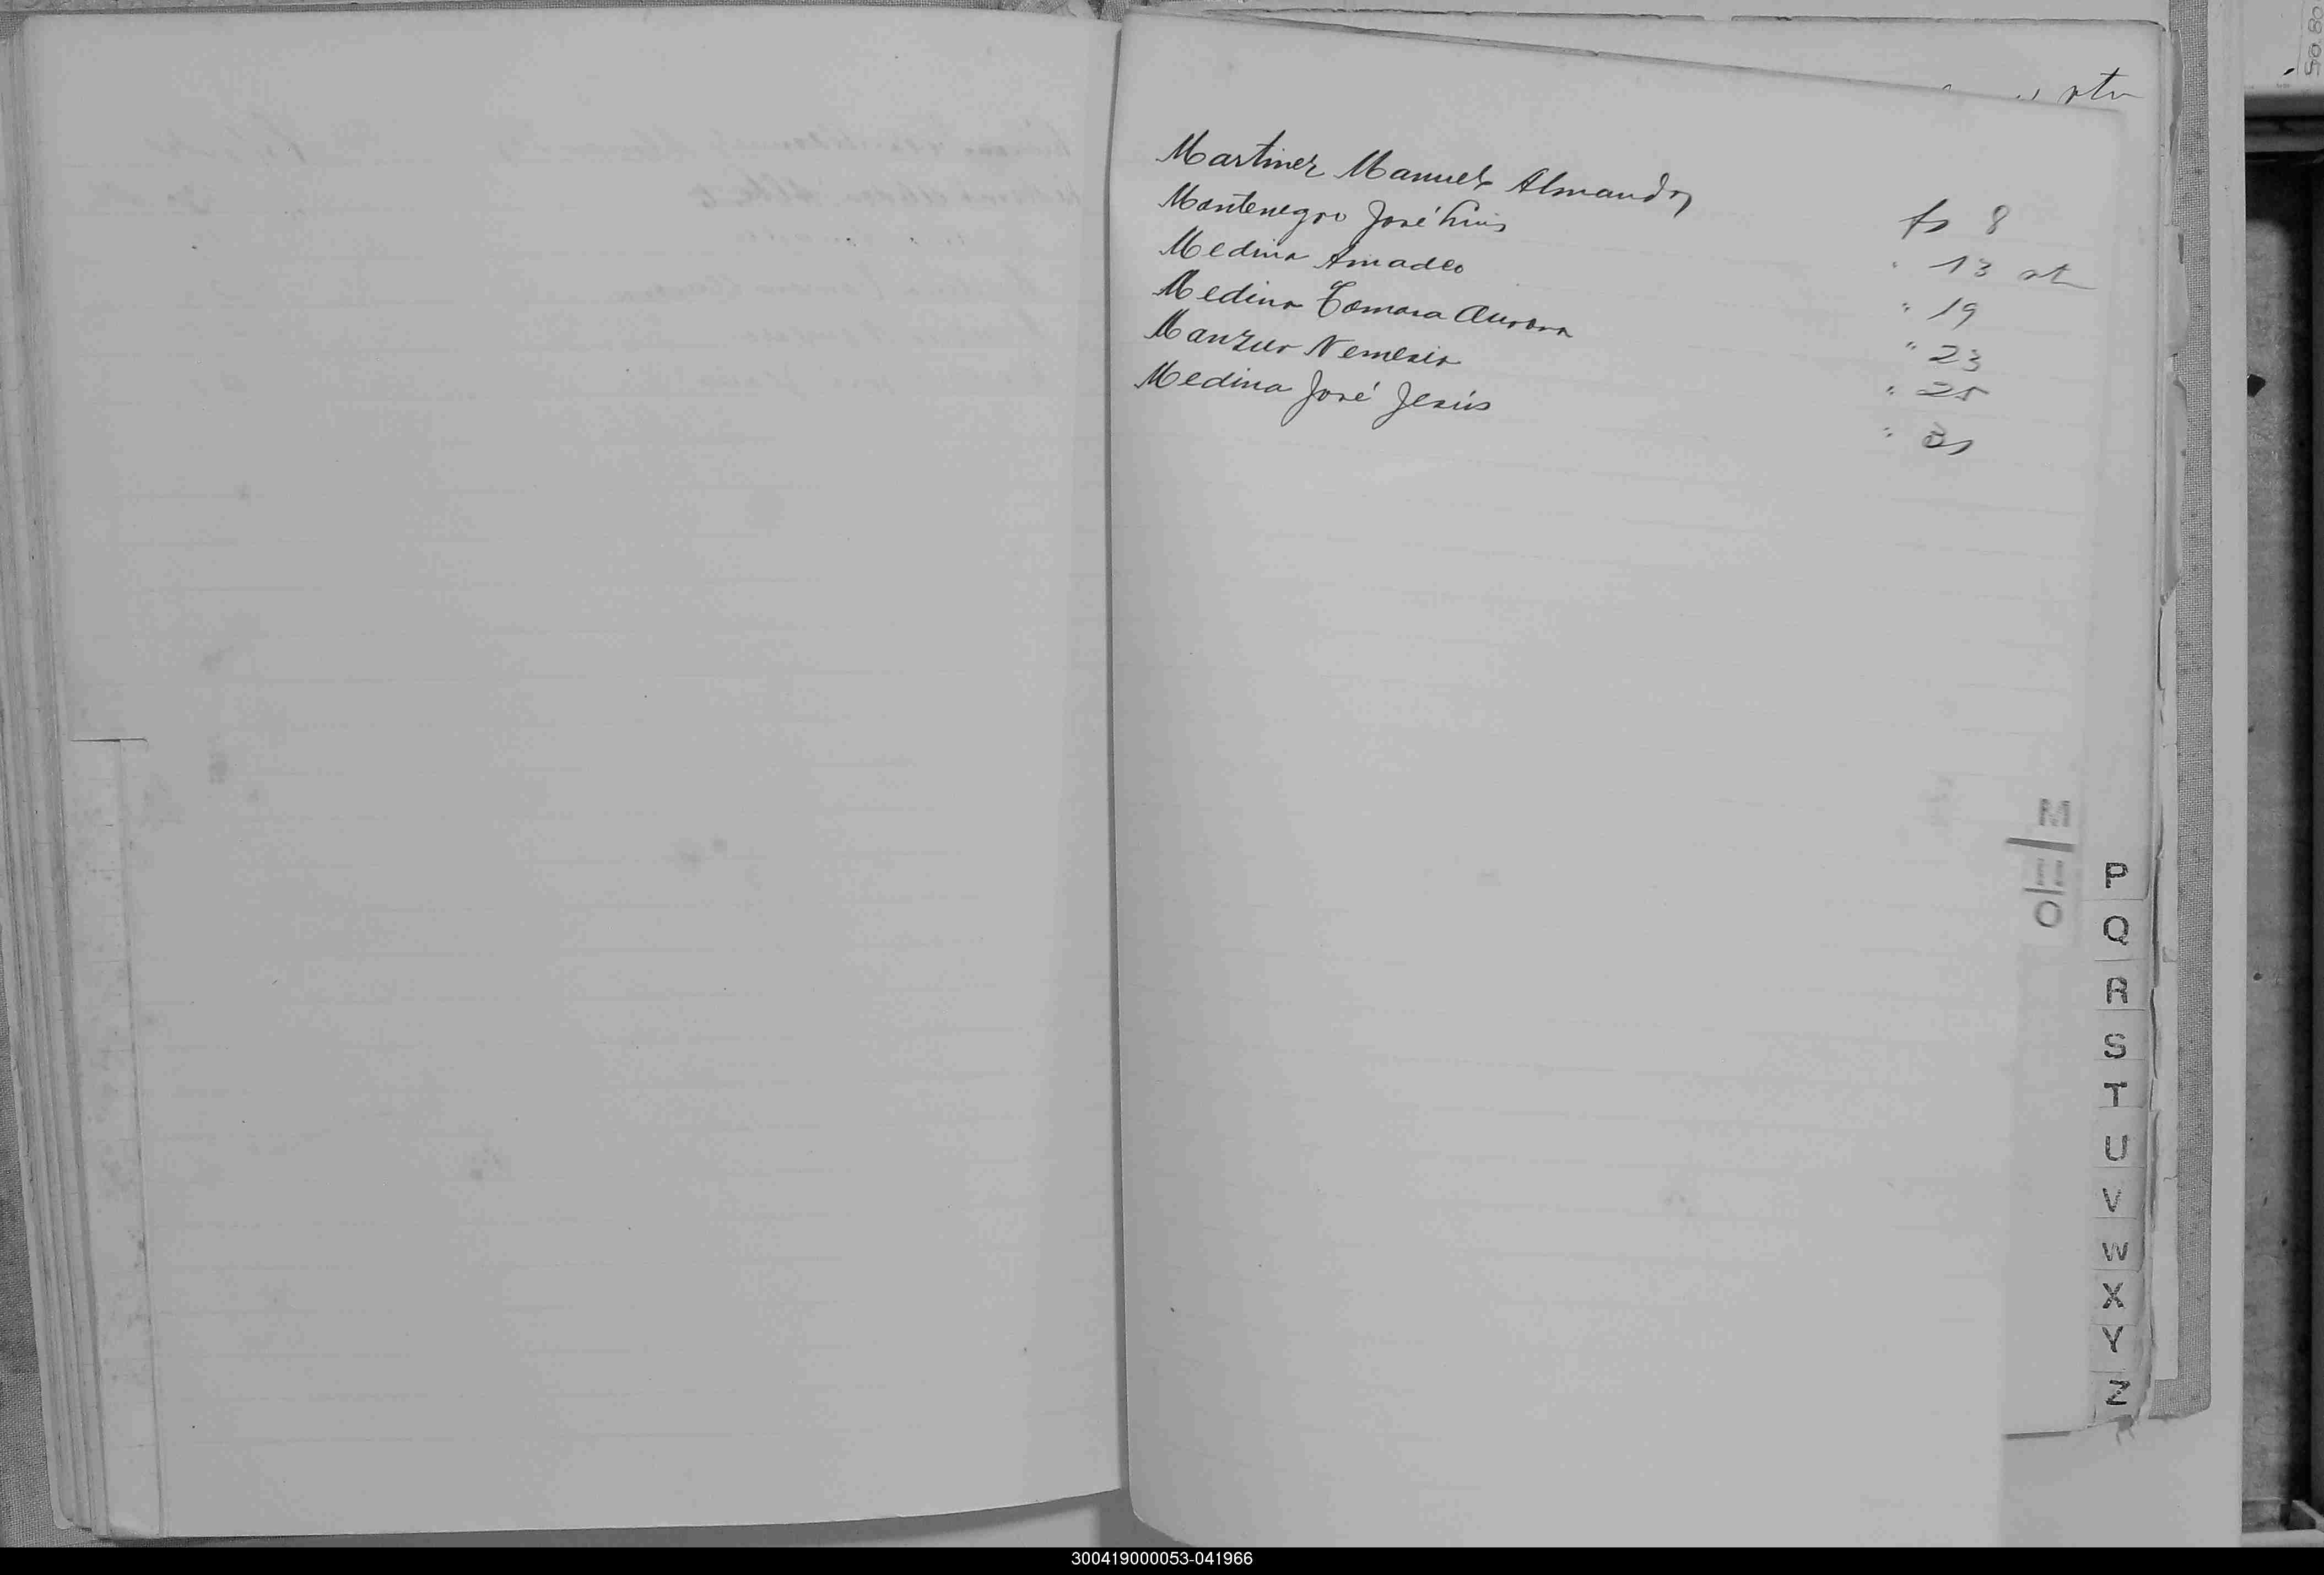 vta
Martinez Manuel Almandoz fs 8
Montenegro José Luis " 13 vta
Medina Amadeo " 19
Medina Tomasa Aurora " 23
Manzur Nemesio " 25
Medina José Jesús " 31
M
O
P
Q
R
S
T
U
V
W
X
Y
Z
300419000053-041966